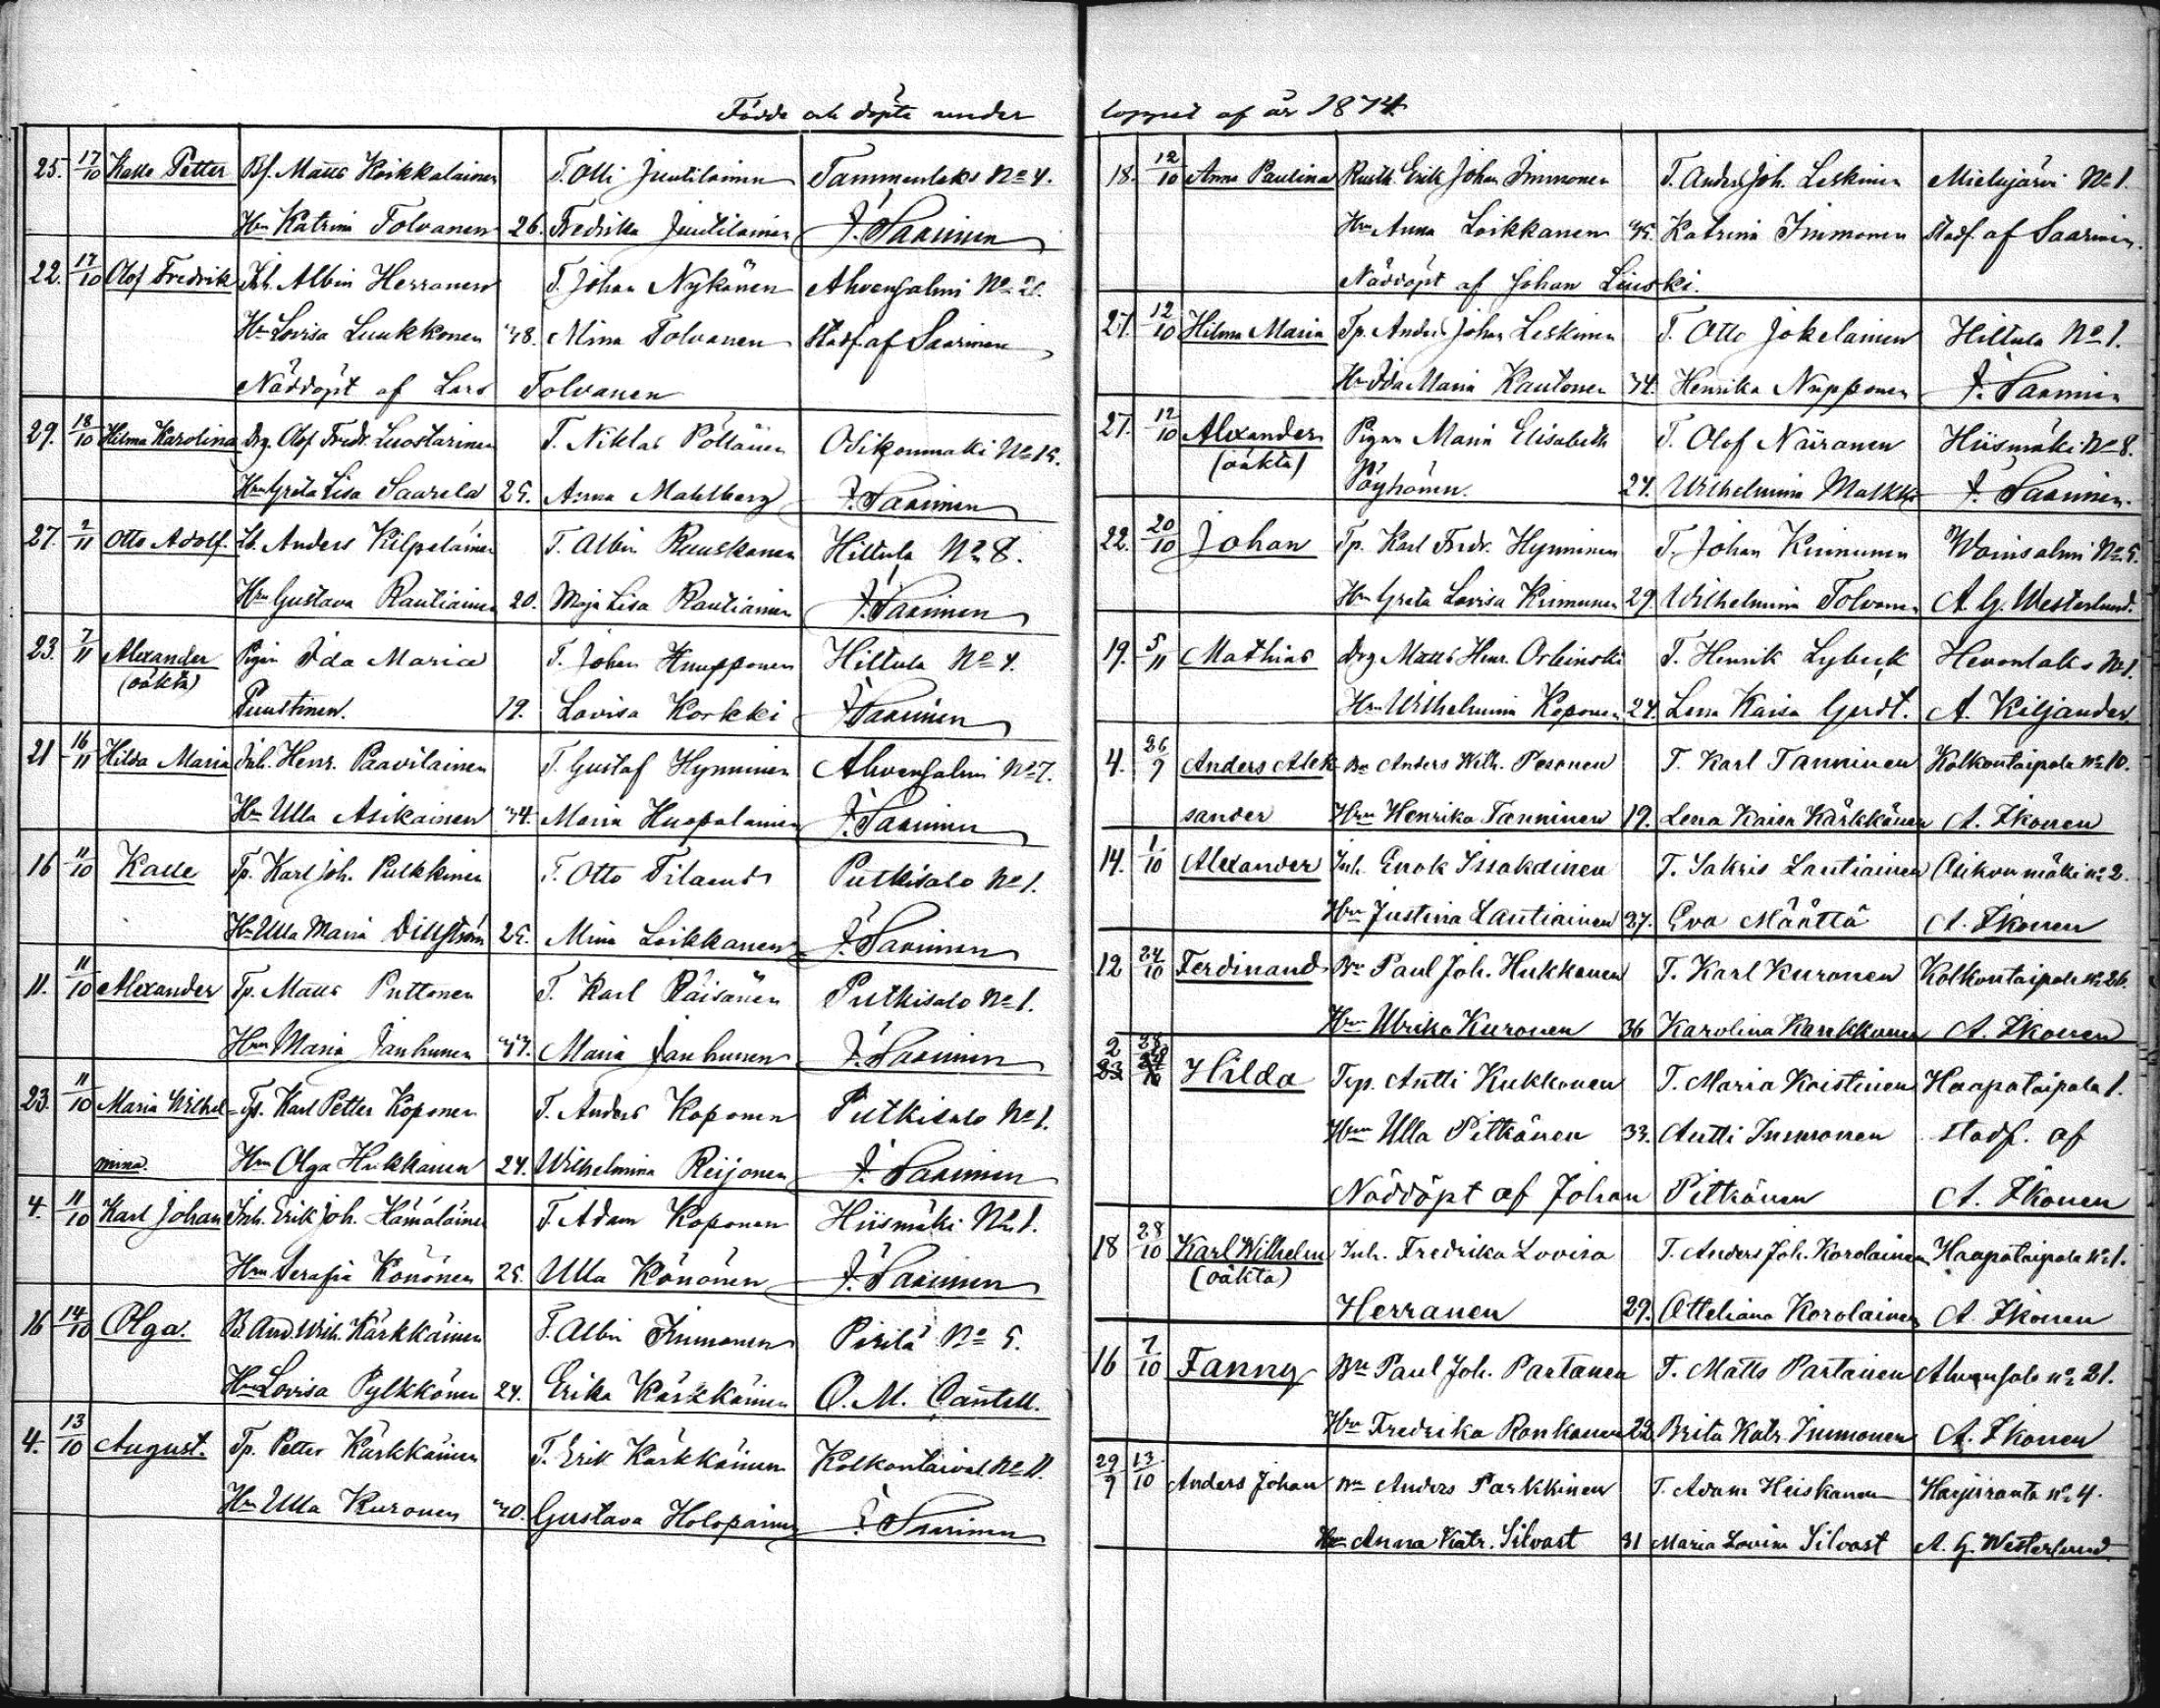 Födde och döpte under loppet af år 1874
25. 17/10 Kalle Petter Bf. Matts Koikkalainen T. Olli Juutilainen Tammenlaks No 4.
Hm Katrina Tolvanen 26. Fredrika Juutilainen J. Saarinen
22. 17/10 Olof Fredrik Inh. Albin Herranen T. Johan Nykänen Ahvensalmi No 21.
Hm Lovisa Luukkonen 38. Mina Tolvanen Stadf. af Saarinen
Nöddöpt af Lars Tolvanen
29. 18/10 Hilma Karolina Drg. Olof Fredr. Luostarinen T. Niklas Pöllänen Osikonmäki No 15.
Hm Greta Lisa Saarela 25. Anna Mahlberg J. Saarinen
27. 2/11 Otto Adolf. Lb. Anders Kilpeläinen T. Albin Ruuskanen Hiltula No 8.
Hm Gustava Rautiainen 20. Maja Lisa Rautiainen J. Saarinen
23. 7/11 Alexander Pigan Ida Maria T. Johan Knupponen Hiltula No 4.
(oäkta) Puustinen. 19. Lovisa Korkki J. Saarinen
21 16/11 Hilda Maria Inh. Henr. Paavilainen T. Gustaf Hynninen Ahvensalmi No 7.
Hm Ulla Asikainen 34. Maria Huopalainen J. Saarinen
16 11/10 Kalle Tp. Karl Joh. Pulkkinen T. Otto Tilaeus Putkisalo No 1.
Hm Ulla Maria Dillström 25. Mina Loikkanen J. Saarinen
11. 11/10 Alexander Tp. Matts Puttonen T. Karl Räisänen Putkisalo No 1.
Hm Maria Janhunen 37. Maria Janhunen J. Saarinen
23. 11/10 Maria Wilhel- Tp. Karl Petter Koponen T. Anders Koponen Putkisalo No 1.
mina. Hm Olga Hukkanen 24. Wilhelmina Reijonen J. Saarinen
4. 11/10 Karl Johan Inh. Erik Joh. Hämäläinen T. Adam Koponen Hiismäki No 1.
Hm Serafia Könönen 25. Ulla Könönen J. Saarinen
16 14/10 Olga. B. And. Wilh. Kärkkäinen T. Albin Immonen Pirilä No 5.
Hm Lovisa Pylkkönen 24. Erika Kärkkäinen O. M. Cantell.
4. 13/10 August. Tp. Petter Kärkkäinen T. Erik Kärkkäinen Kolkontaival No 11.
Hm Ulla Kuronen 30. Gustava Holopainen J. Saarinen
18. 12/10 Anna Paulina Rusth. Erik Johan Immonen T. Anders Joh. Leskinen Mielujärvi No 1.
Hm Anna Loikkanen 35. Katrina Immonen Stadf. af Saarinen.
Nöddöpt af Johan Linski.
27. 12/10 Hilma Maria Tp. Anders Johan Leskinen T. Otto Jokelainen Hiltula No 1.
Hm Ida Maria Kautonen 34. Henrika Nupponen J. Saarinen
27. 12/10 Alexander Pigan Maria Elisabeth T. Olof Näiränen Hiismäki No 8.
(oäkta) Pöyhönen. 24. Wilhelmina Malkki J. Saarinen.
22. 20/10 Johan Tp. Karl Fredr. Hynninen T. Johan Kinnunen Wainsalmi No 5.
Hm Greta Lovisa Kinnunen 29. Wilhelmina Tolvanen A. G. Westerlund.
19. 5/11 Mathias Drg Matts Henr. Orbinski T. Henrik Lybeck Hevonlaks No 1.
Hm Wilhelmina Koponen 24. Lena Kaisa Gerdt. A. Kiljander
4. 26/9 Anders Alek- Bn Anders Wilh. Pesonen T. Karl Tanninen Kolkontaipale No 10.
sander Hm Henrika Tanninen 19. Lena Kaisa Kärkkänen A. Ikonen
14. 1/10 Alexander Inh. Enok Issakainen T. Sakris Lautiainen Osikonmäki No 2.
Hm Justina Lautiainen 27. Eva Määttä A. Ikonen
12 24/10 Ferdinand Bn Paul Joh. Hukkanen T. Karl Kuronen Kolkontaipale No 26.
Hm Ulrika Kuronen 36 Karolina Kaukkonen A. Ikonen
2 28/10 Hilda Trp. Antti Kukkonen T. Maria Koistinen Haapataipale 1.
Hm Ulla Pitkänen 33. Antti Immonen stadf. af
Nöddöpt af Johan Pitkänen A. Ikonen
18 28/10 Karl Wilhelm Inh. Fredrika Lovisa T. Anders Joh. Korolainen Haapataipale No 1.
(oäkta) Herranen 29. Otteliana Korolainen A. Ikonen
16 7/10 Fanny Bn Paul Joh. Partanen T. Matts Partainen Ahvensalo No 21.
Hm Fredrika Ronkanen 22. Brita Katr. Immonen A. Ikonen
29/9 13/10 Anders Johan Bn Anders Parkkinen T. Adam Heiskanen Harjuranta No 4.
Hm Anna Katr. Silvast 31 Maria Lovisa Silvast A. G. Westerlund.